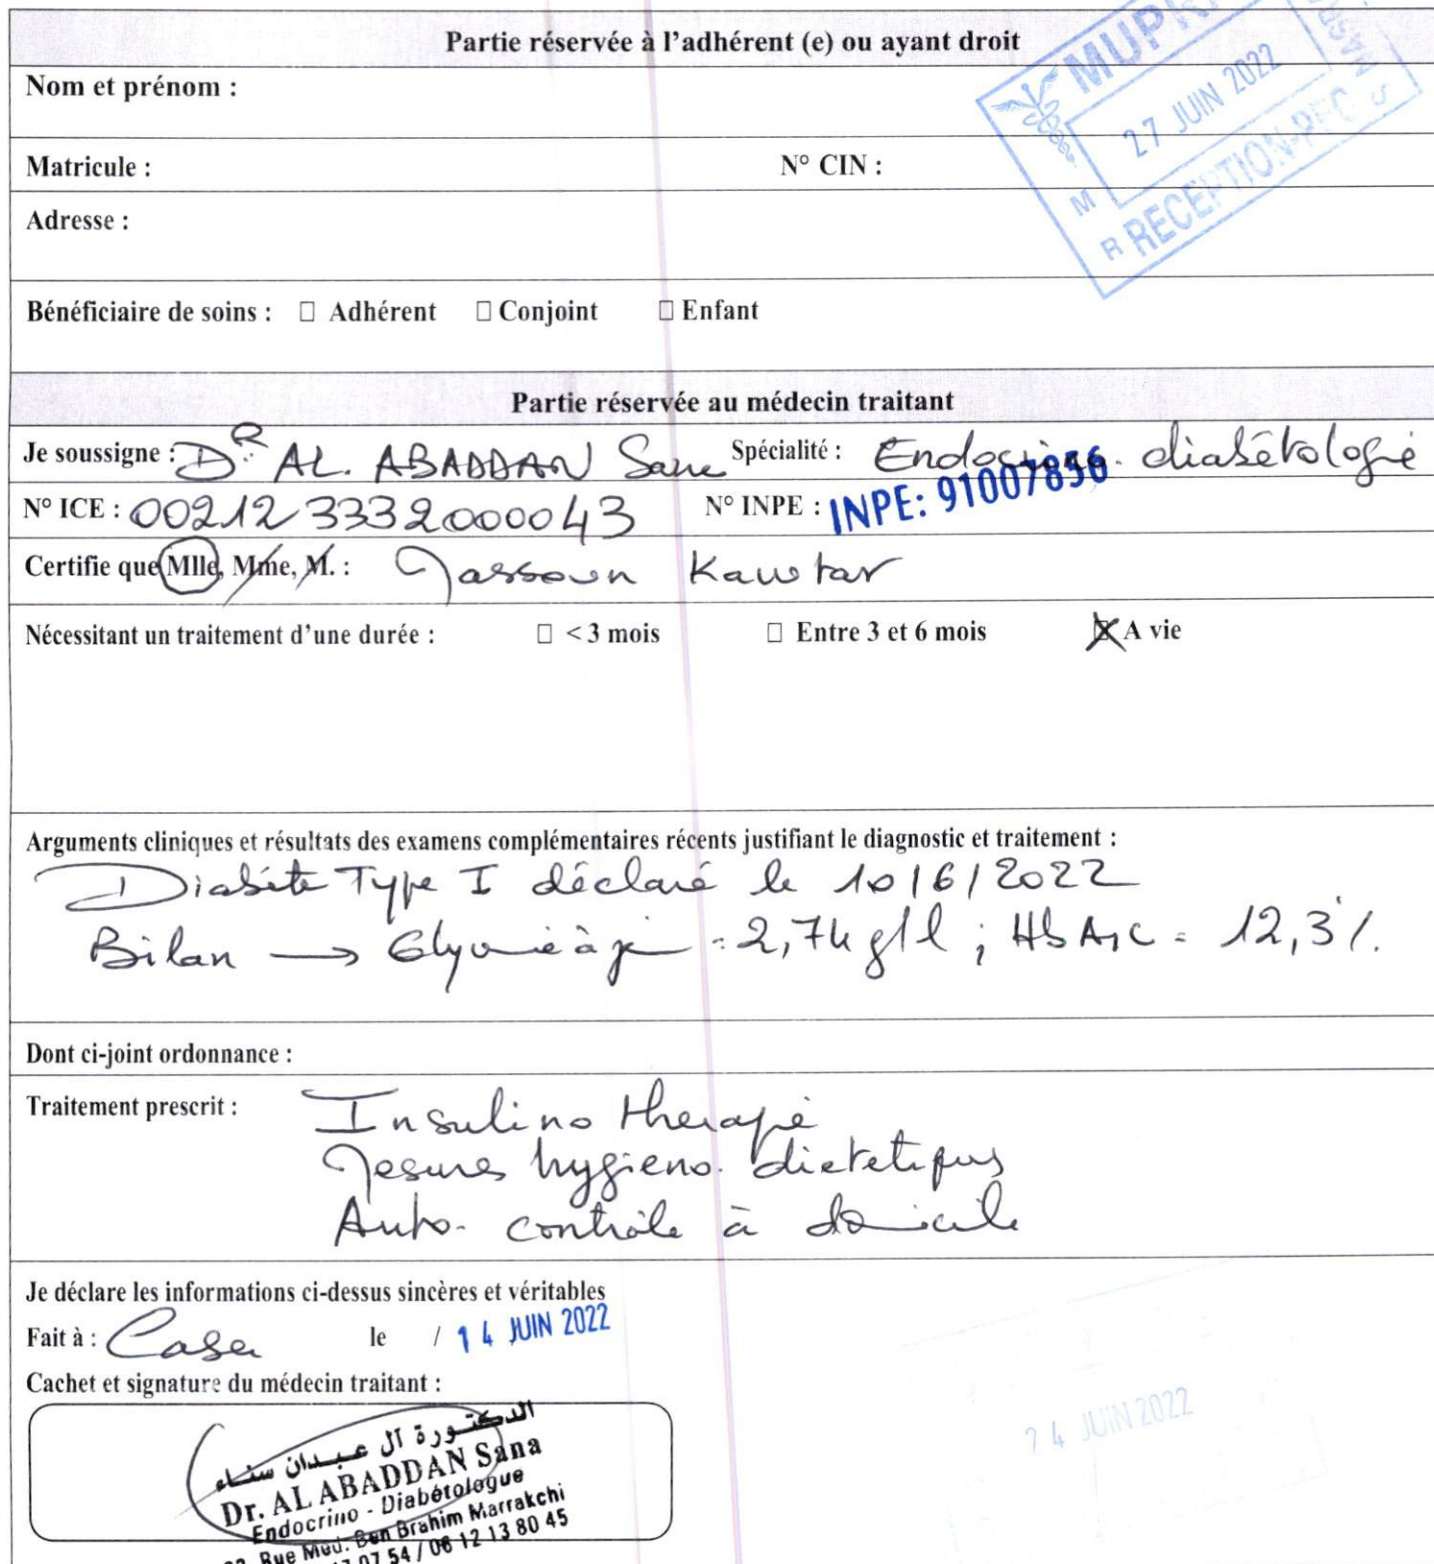 Partie réservée à l'adhérent (e) ou ayant droit
MUPR
27 JUIN 2022
RECEPTION-PEC
Nom et prénom :
Matricule : N° CIN :
Adresse :
Bénéficiaire de soins : □ Adhérent □ Conjoint □ Enfant
Partie réservée au médecin traitant
Je soussigne : Dr AL. ABADDAN Sana Spécialité : Endocrino. diabétologie
N° ICE : 002123332000043 N° INPE : INPE: 91007856
Certifie que Mlle, Mme, M. : Massoun Kawtar
Nécessitant un traitement d'une durée : □ < 3 mois □ Entre 3 et 6 mois ☒ A vie
Arguments cliniques et résultats des examens complémentaires récents justifiant le diagnostic et traitement :
Diabéte Type I déclaré le 10/6/2022
Bilan → Glycémie à jeun : 2,74 g/l ; HbA1C = 12,3%.
Dont ci-joint ordonnance :
Traitement prescrit : Insulino therapie
Mesures hygieno. dietetiques
Auto-contrôle à domicile
Je déclare les informations ci-dessus sincères et véritables
Fait à : Casa le / 14 JUIN 2022
Cachet et signature du médecin traitant :
24 JUIN 2022
الدكتورة آل عبدان سناء
Dr. AL ABADDAN Sana
Endocrino - Diabétologue
Rue Med. Ben Brahim Marrakchi
07 54 / 06 12 13 80 45